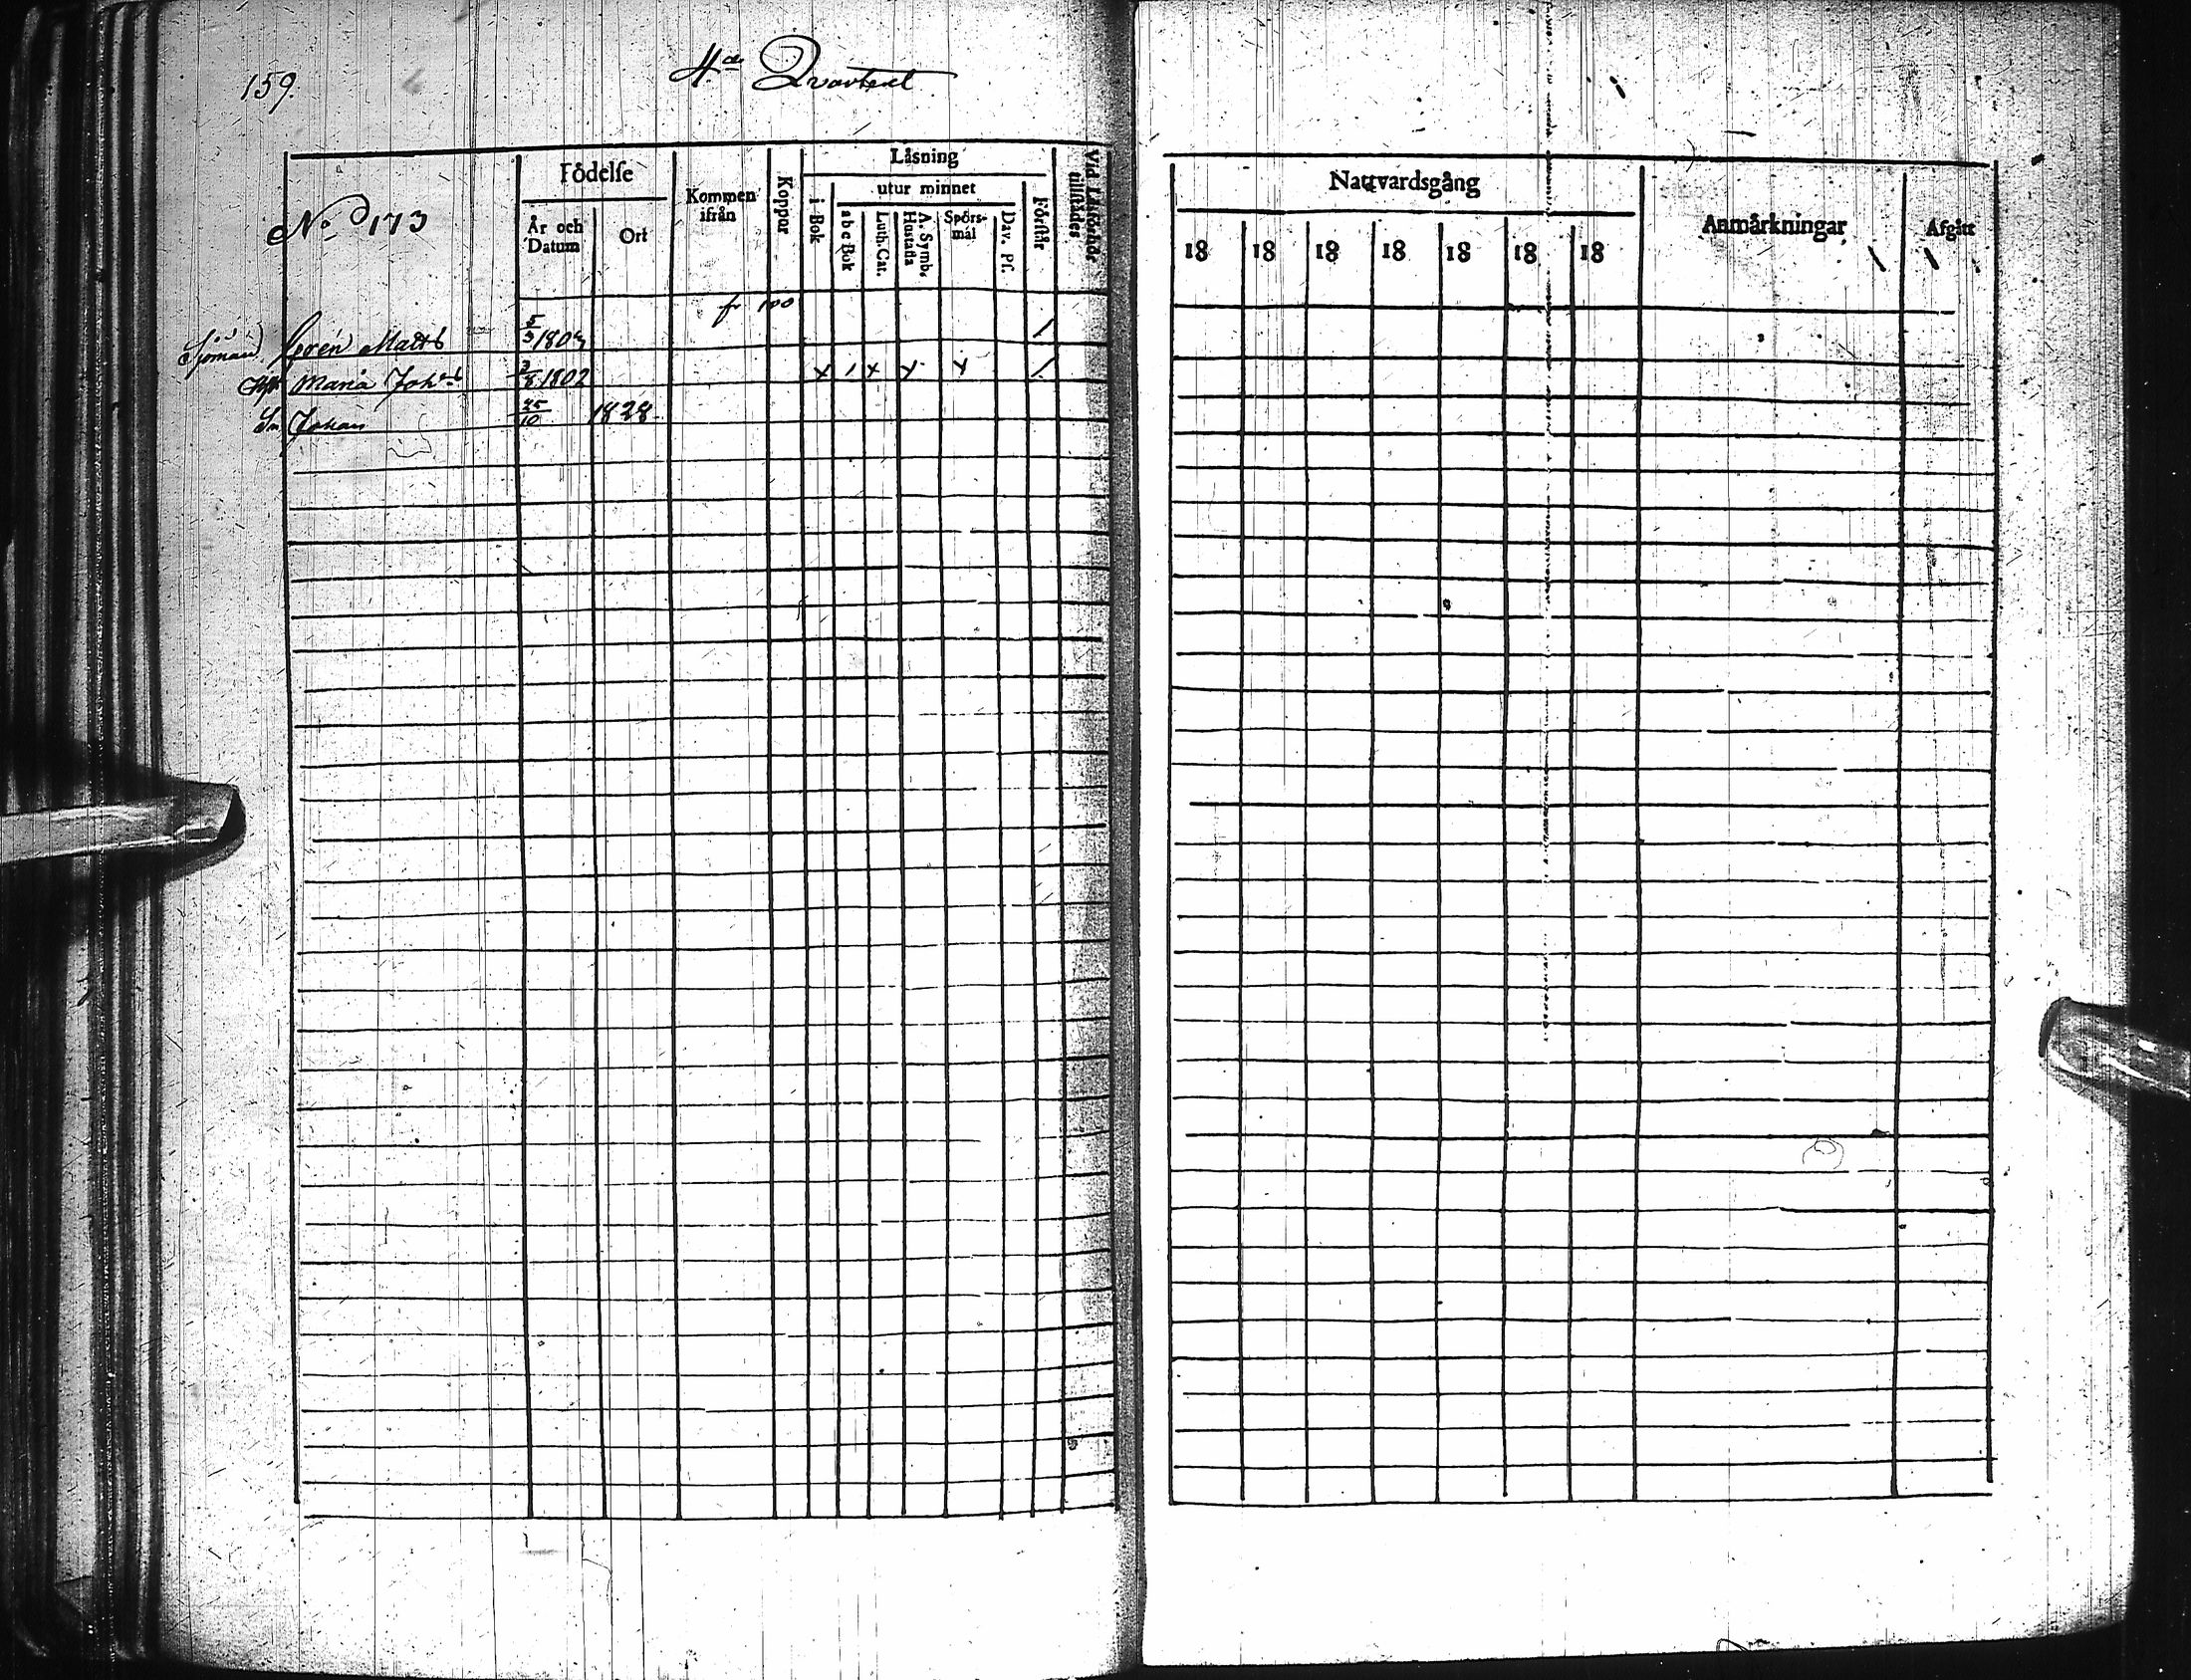 159.
4de Qvarteret
No 173
Födelse
År och Datum
Ort
Kommen ifrån
Koppor
Läsning
i Bok
utur minnet
abc Bok
Luth. Cat.
A. Symb. Hustafla
Spörsmål
Dav. Ps.
Förstår
Vid Läsförhör tillstädes
fr 100
Sjöman Matts 5/3 /
Maria Joh:s 1802 x / x x x /
Sn Johan 25/10 1828
Nattvardsgång
18 18 18 18 18 18 18
Anmärkningar
Afgått